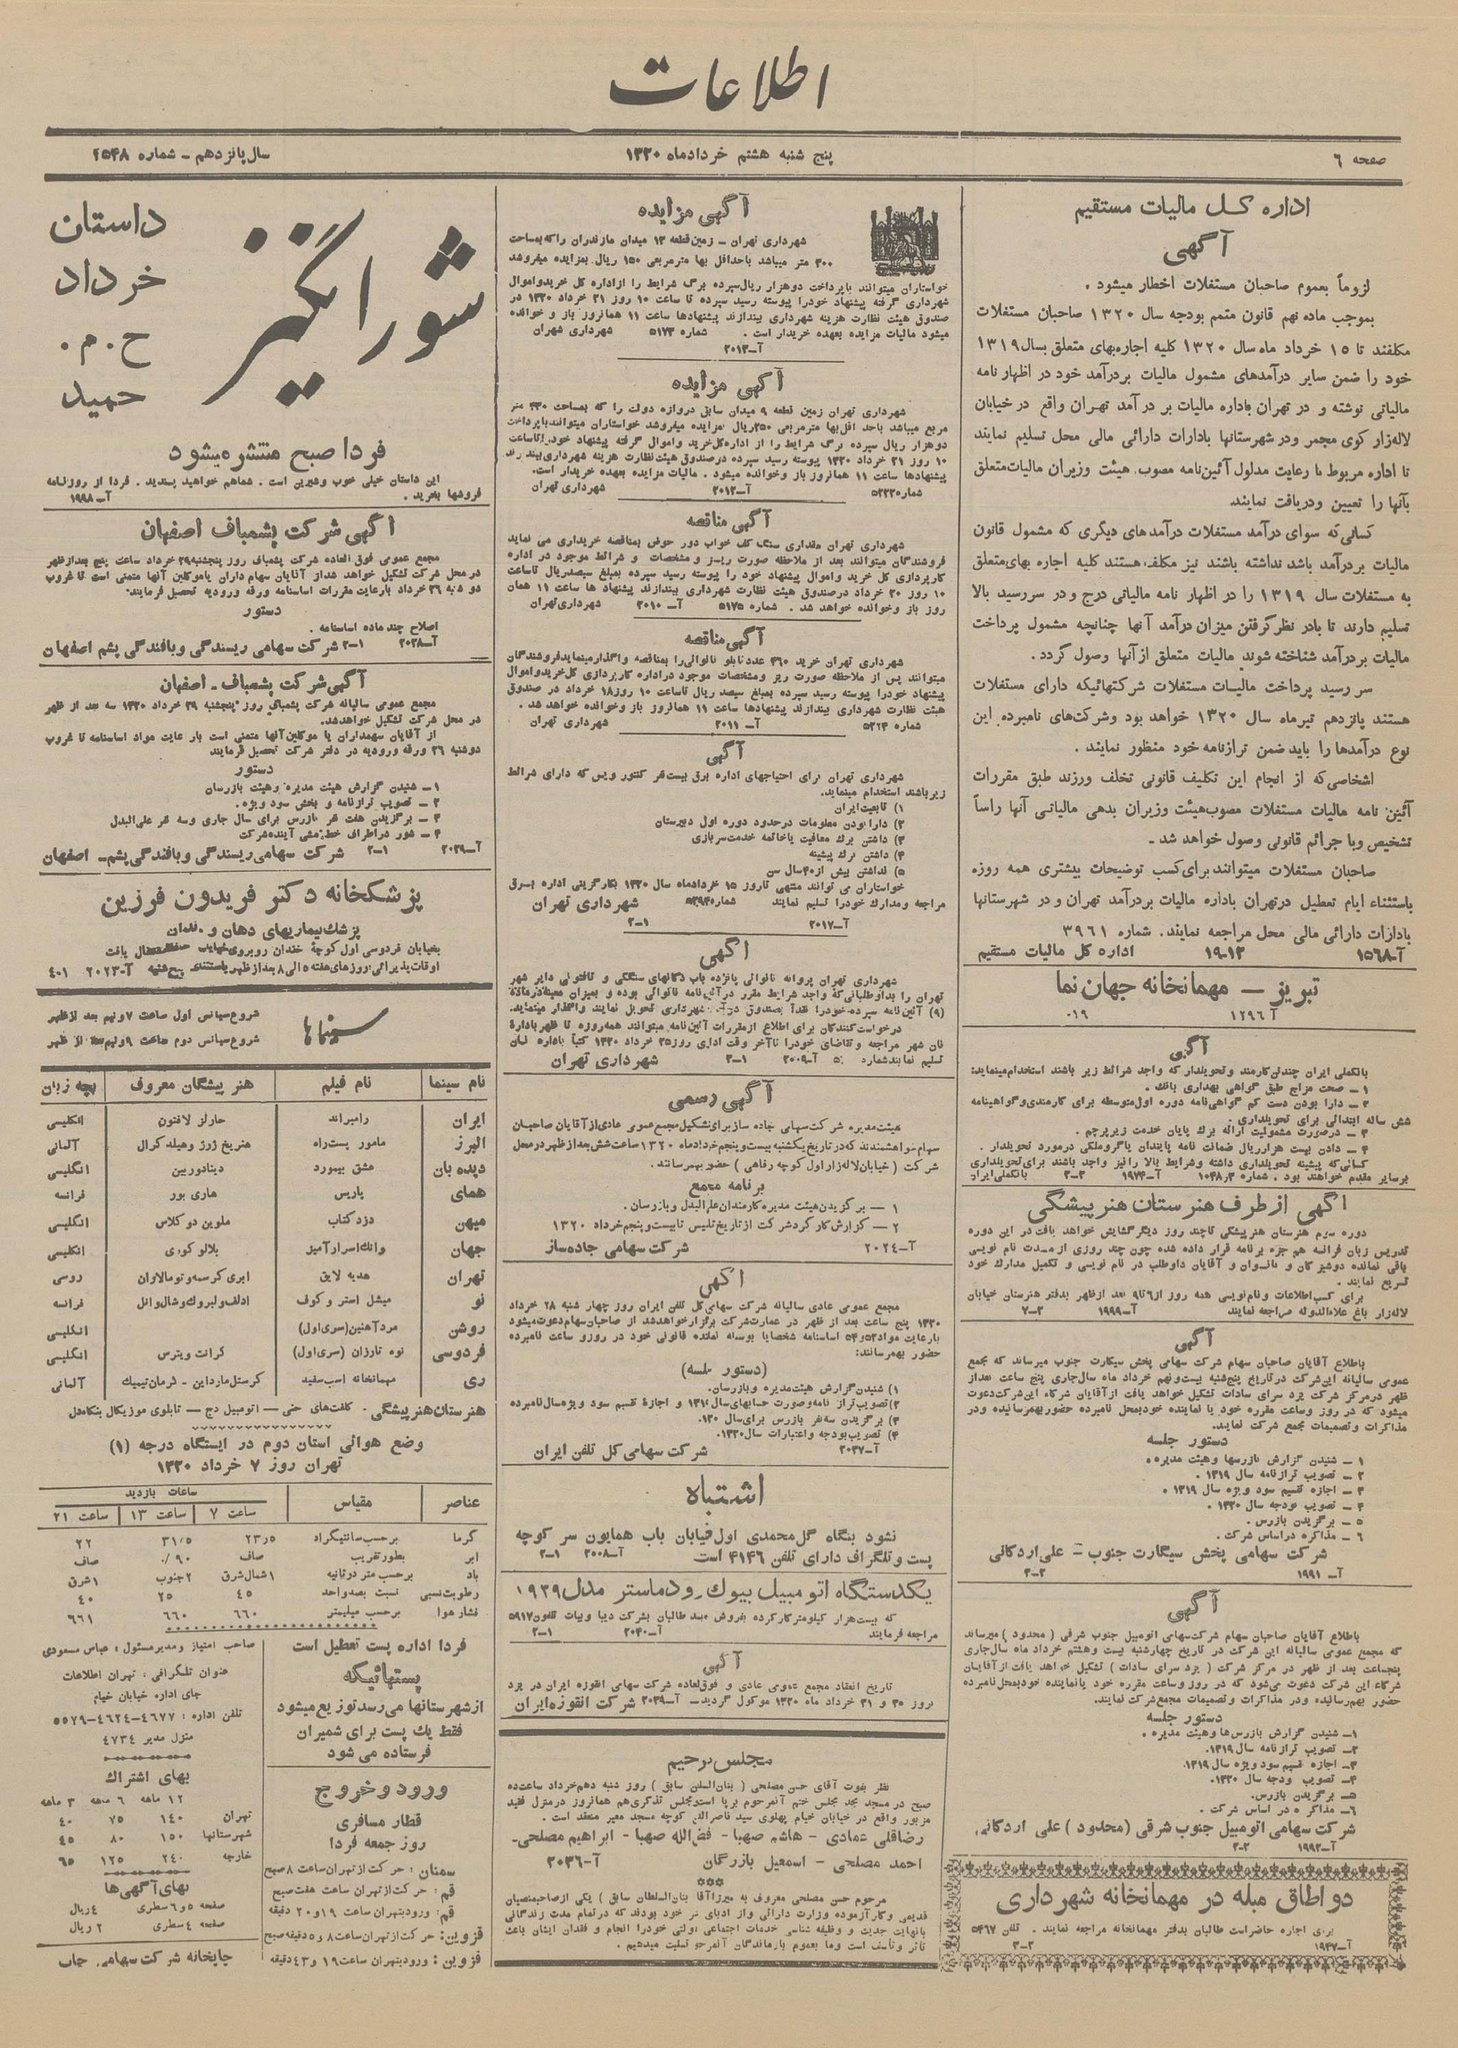 اطلاعات
صفحه ۶
پنج شنبه هشتم خردادماه ۱۳۲۰
سال پانزدهم – شماره ۴۵۴۸
اداره کل مالیات مستقیم
آگهی
لزوماً بعموم صاحبان مستغلات اخطار میشود .
بموجب ماده نهم قانون متمم بودجه سال ۱۳۲۰ صاحبان مستغلات
مکلفند تا ۱۵ خرداد ماه سال ۱۳۲۰ کلیه اجاره‌بهای متعلق بسال ۱۳۱۹
خود را ضمن سایر درآمدهای مشمول مالیات بردرآمد خود در اظهار نامه
مالیاتی نوشته و در تهران باداره مالیات بر درآمد تهران واقع در خیابان
لاله‌زار کوی مجمر ودر شهرستانها بادارات دارائی مالی محل تسلیم نمایند
تا اداره مربوط با رعایت مدلول آئین‌نامه مصوب هیئت وزیران مالیات‌متعلق
بآنها را تعیین ودریافت نمایند
کسانی‌که سوای درآمد مستغلات درآمدهای دیگری که مشمول قانون
مالیات بردرآمد باشد نداشته باشند نیز مکلف هستند کلیه اجاره بهای‌متعلق
به مستغلات سال ۱۳۱۹ را در اظهار نامه مالیاتی درج و در سررسید بالا
تسلیم دارند تا بادر نظرگرفتن میزان درآمد آنها چنانچه مشمول پرداخت
مالیات بردرآمد شناخته شوند مالیات متعلق ازآنها وصول گردد .
سر رسید پرداخت مالیات مستغلات شرکتهائیکه دارای مستغلات
هستند پانزدهم تیرماه سال ۱۳۲۰ خواهد بود وشرکت‌های نامبرده این
نوع درآمدها را باید ضمن ترازنامه خود منظور نمایند .
اشخاصی‌که از انجام این تکلیف قانونی تخلف ورزند طبق مقررات
آئین نامه مالیات مستغلات مصوب‌هیئت وزیران بدهی مالیاتی آنها راساً
تشخیص وبا جرائم قانونی وصول خواهد شد –
صاحبان مستغلات میتوانند برای‌کسب توضیحات بیشتری همه روزه
باستثناء ایام تعطیل درتهران باداره مالیات بردرآمد تهران و در شهرستانها
بادارات دارائی مالی محل مراجعه نمایند. شماره ۳۹۶۱
آ–۱۵۶۸ ۱۲–۱۹ اداره کل مالیات مستقیم
تبریز – مهمانخانه جهان نما
آ ۱۲۹۶
آگهی
بانکملی ایران چندتن‌کارمند وتحویلدار که واجد شرائط زیر باشند استخدام‌مینماید:
۱ – صحت مزاج طبق گواهی بهداری بانک .
۲ – دارا بودن دست کم گواهی‌نامه دوره اول‌متوسطه برای کارمندی‌وگواهینامه
شش ساله ابتدائی برای تحویلداری .
۳ – درصورت مشمولیت ارائه برک پایان خدمت زیرپرچم .
۴ – دادن بیست هزارریال ضمانت نامه پابندان یاگروملکی درمورد تحویلدار .
کسانی‌که پیشینه تحویلداری داشته وشرایط بالا رانیز واجد باشند برای‌تحویلداری
برسایر مقدم خواهند بود .
آگهی از طرف هنرستان هنرپیشگی
دوره سوم هنرستان هنرپیشکی تاچند روز دیگرگشایش خواهد یافت در این دوره
تدریس زبان فرانسه هم جزء برنامه قرار داده شده چون چند روزی از مدت نام نویسی
باقی نمانده دوشیزگان و بانوان و آقایان داوطلب در نام نویسی و تکمیل مدارک خود
تسریع نمایند .
برای کسب‌اطلاعات ونام‌نویسی همه روز از۶تا۹ بعد ازظهر بدفتر هنرستان خیابان
لاله‌زار باغ علاءالدوله مراجعه نمایند آ–۱۹۹۹
آگهی
باطلاع آقایان صاحبان سهام شرکت سهامی پخش سیگارت جنوب میرساند که مجمع
عمومی سالیانه این‌شرکت درتاریخ پنج‌شنبه بیست‌ونهم خرداد ماه سال‌جاری پنج ساعت بعداز
ظهر درمرکز شرکت یزد سرای سادات تشکیل خواهد یافت ازآقایان شرکاء این‌شرکت‌دعوت
میشود که در روز وساعت مقرره خود یا نماینده خودبمحل نامبرده حضور بهمرسانیده ودر
مذاکرات وتصمیمات مجمع شرکت نمایند.
دستور جلسه
۱ – شنیدن گزارش بازرسها وهیئت مدیره.
۲ – تصویب ترازنامه سال ۱۳۱۹ .
۳ – اجازه تقسیم سود ویژه سال ۱۳۱۹ .
۴ – تصویب بودجه سال ۱۳۲۰ .
۵ – برگزیدن بازرس .
۶ – مذاکره دراساس شرکت .
شرکت سهامی پخش سیگارت جنوب – علی‌اردکانی
آ– ۱۹۹۱
آگهی
باطلاع آقایان صاحبان سهام شرکت‌سهامی اتومبیل جنوب شرقی ( محدود ) میرساند
که مجمع عمومی سالیانه این شرکت در تاریخ چهارشنبه بیست وهشتم خرداد ماه سال‌جاری
پنجساعت بعد از ظهر در مرکز شرکت ( یزد سرای سادات ) تشکیل خواهد یافت ازآقایان
شرکاء این شرکت دعوت می‌شود که در روز وساعت مقرره خود یانماینده خودبمحل نامبرده
حضور بهم‌رسانیده ودر مذاکرات وتصمیمات مجمع‌شرکت نمایند.
دستور جلسه
۱– شنیدن گزارش بازرس‌ها وهیئت مدیره .
۲– تصویب ترازنامه سال ۱۳۱۹.
۳– اجازه تقسیم سود ویژه سال ۱۳۱۹.
۴– تصویب بودجه سال ۱۳۲۰.
۵– برگزیدن بازرس.
۶– مذاکره در اساس شرکت .
شرکت سهامی اتومبیل جنوب شرقی (محدود ) علی اردکانی
آ–۱۹۹۲
دو اطاق مبله در مهمانخانه شهرداری
برای اجاره حاضراست طالبان بدفتر مهمانخانه مراجعه نمایند . تلفن ۵۴۶۷
آ–۱۹۴۷
آگهی مزایده
شهرداری تهران – زمین‌قطعه ۱۳ میدان مازندران راکه‌بمساحت
۳۰۰ متر میباشد باحداقل بها مترمربعی ۱۵۰ ریال بمزایده میفروشد
خواستاران میتوانند باپرداخت دوهزار ریال‌سپرده برگ شرایط را ازاداره کل خریدواموال
شهرداری گرفته پیشنهاد خودرا پیوسته رسید سپرده تا ساعت ۱۰ روز ۲۱ خرداد ۱۳۲۰ در
صندوق هیئت نظارت هزینه شهرداری بیندازند پیشنهادها ساعت ۱۱ همانروز باز و خوانده
میشود مالیات مزایده بعهده خریدار است . شماره ۵۱۷۳ شهرداری تهران
آ–۲۰۱۳
آگهی مزایده
شهرداری تهران زمین قطعه ۹ میدان سابق دروازه دولت را که بمساحت ۲۳۰ متر
مربع میباشد باحد اقل‌بها مترمربعی ۲۵۰ریال بمزایده میفروشد خواستاران میتوانندباپرداخت
دوهزار ریال سپرده برگ شرایط را از اداره‌کل‌خرید واموال گرفته پیشنهاد خودرا تاساعت
۱۰ روز ۲۱ خرداد ۱۳۲۰ پیوسته رسید سپرده درصندوق هیئت‌نظارت هزینه شهرداری‌بیندازند
پیشنهادها ساعت ۱۱ همانروز باز وخوانده میشود . مالیات مزایده بعهده خریدار است.
شهرداری تهران
آگهی مناقصه
شهرداری تهران مقداری سنگ کف خواب دور حوض بمناقصه خریداری می نماید
فروشندگان میتوانند بعد از ملاحظه صورت ریز و مشخصات و شرائط موجود در اداره
کارپردازی کل خرید واموال پیشنهاد خود را پیوسته رسید سپرده بمبلغ سیصدریال تاساعت
۱۰ روز ۲۰ خرداد درصندوق هیئت نظارت شهرداری بیندازند پیشنهاد ها ساعت ۱۱ همان
روز باز وخوانده خواهد شد . شماره ۵۱۷۵ آ– ۲۰۱۰ شهرداری‌تهران
آگهی مناقصه
شهرداری تهران خرید ۳۶۰ عددتابلو نانوائی‌را بمناقصه واگذارمینمایدفروشندگان
میتوانند پس از ملاحظه صورت ریز ومشخصات موجود دراداره کارپردازی کل‌خریدواموال
پیشنهاد خودرا پیوسته رسید سپرده بمبلغ سیصد ریال تاساعت ۱۰ روز۱۸ خرداد در صندوق
هیئت نظارت شهرداری بیندازند پیشنهادها ساعت ۱۱ همانروز باز وخوانده خواهد شد .
آ– ۲۰۱۱ شهرداری تهران
آگهی
شهرداری تهران برای احتیاجهای اداره برق بیست‌نفر کنتور ویس که دارای شرائط
زیرباشند استخدام مینماید.
۱) تابعیت‌ایران
۲) دارابودن معلومات درحدود دوره اول دبیرستان
۳) داشتن برک معافیت یاخاتمه خدمت‌سربازی
۴) داشتن برک پیشینه
۵) نداشتن بیش از۴۰سال سن
خواستاران می توانند منتهی تاروز ۱۵ خردادماه سال ۱۳۲۰ بکارگزینی اداره برق
مراجعه ومدارک خودرا تسلیم نمایند شهرداری تهران
آ–۲۰۱۷
آگهی
شهرداری تهران پروانه نانوائی پانزده باب دکانهای سنگکی و تافتونی دایر شهر
تهران را بداوطلبانی‌که واجد شرایط مقرر درآئین‌نامه نانوائی بوده و بمیزان معینه‌درماده
(۹) آئین‌نامه سپرده‌خودرا نقداً بصندوق شهرداری تحویل نمایند واگذار مینماید.
درخواست‌کنندگان برای اطلاع ازمقررات آئین‌نامه میتوانند همه‌روزه تا ظهربادارهٔ
نان شهر مراجعه و تقاضای خودرا تاآخر وقت اداری روز۲۵ خرداد ۱۳۲۰ کتباً باداره نان
تسلیم نمایند آ–۲۰۰۹ شهرداری تهران
آگهی رسمی
هیئت‌مدیره شرکت‌سهامی جاده سازبرای‌تشکیل‌مجمع‌عمومی عادی‌ازآقایان صاحبان
سهام خواهشمندند که درتاریخ یکشنبه بیست‌وپنجم‌خردادماه ۱۳۲۰ ساعت‌شش‌بعدازظهر درمحل
شرکت ( خیابان لاله‌زاراول کوچه رفاهی ) حضور بهمرسانند .
برنامه مجمع
۱ – برگزیدن‌هیئت مدیره کارمندان علی‌البدل وبازرسان .
۲ – گزارش کارکردشرکت ازتاریخ‌تاسیس تابیست‌وپنجم‌خرداد ۱۳۲۰
آ–۲۰۲۴ شرکت سهامی جاده‌ساز
آگهی
مجمع عمومی عادی سالیانه شرکت سهامی‌کل تلفن ایران روز چهار شنبه ۲۸ خرداد
۱۳۲۰ پنج ساعت بعد از ظهر در عمارت‌شرکت برگزارخواهدشد از صاحبان‌سهام‌دعوت‌میشود
بارعایت مواد۵۳و۵۴ اساسنامه شخصاً یا بوسیله نماینده قانونی خود در روزو ساعت نامبرده
حضور بهمرسانند:
(دستور جلسه)
۱) شنیدن‌گزارش هیئت‌مدیره وبازرسان.
۳) برگزیدن سه‌نفر بازرس برای‌سال ۱۳۲۰.
۴) تصویب‌بودجه واعتبارات سال۱۳۲۰.
آ–۲۰۳۷ شرکت سهامی‌کل تلفن ایران
اشتباه
نشود بنگاه گل‌محمدی اول‌خیابان باب همایون سر کوچه
پست وتلگراف دارای تلفن ۴۱۴۶ است آ–۲۰۰۸
یکدستگاه اتومبیل بیوک رودماستر مدل ۱۹۳۹
که بیست‌هزار کیلومترکارکرده بفروش میرسد طالبان بشرکت دیبا وبیات تلفون۵۹۱۷
مراجعه فرمایند آ–۲۰۴۰
آگهی
تاریخ انعقاد مجمع عمومی عادی و فوق‌العاده شرکت سهامی انقوزه ایران در یزد
بروز ۳۰ و ۳۱ خرداد ماه ۱۳۲۰ موکول گردید– شرکت انقوزه‌ایران
مجلس ترحیم
صبح در مسجد مجد مجلس ختم آنمرحوم برپا است‌ومجلس تذکری‌هم همانروز درمنزل فقید
مزبور واقع در خیابان خیام پهلوی سید ناصرالدین کوچه مسجد معیر منعقد است .
رضاقلی عمادی – هاشم صهبا – فضل‌الله صهبا – ابراهیم مصلحی–
احمد مصلحی – اسمعیل بازرگان آ–۲۰۳۶
مرحوم حسن مصلحی معروف به میرزاآقا بنان‌السلطان سابق ) یکی ازصاحبمنصبان
قدیمی وکارآزموده وزارت دارائی واز ادبای بودند که‌درتمام مدت زندگانی
بانهایت جدیت و وظیفه شناسی خدمات اجتماعی دولتی خودرا انجام و فقدان ایشان باعث
تأثر وتأسف است وما بعموم بازماندگان آنمرحوم تسلیت میدهیم .
شورانگیز
داستان
خرداد
ح . م .
حمید
فردا صبح منتشر میشود
این داستان خیلی خوب وشیرین است . شماهم خواهید پسندید . فردا از روزنامه
فروشها بخرید . آ–۱۹۹۸
آگهی شرکت پشمباف اصفهان
مجمع عمومی فوق العاده شرکت پشمباف روز پنجشنبه۲۹ خرداد ساعت پنج بعدازظهر
در محل شرکت تشکیل خواهد شداز آقایان سهام داران یاموکلین آنها متمنی است تا غروب
دوشنبه ۲۶ خرداد بارعایت مقررات اساسنامه ورقه ورودیه تحصیل فرمایند:
دستور
اصلاح چند ماده اساسنامه .
آ–۲۰۳۸ شرکت سهامی ریسندگی وبافندگی پشم اصفهان
آگهی شرکت پشمباف – اصفهان
مجمع عمومی سالیانه شرکت پشمباف روز پنجشنبه ۲۹ خرداد ۱۳۲۰ سه بعد از ظهر
در محل شرکت تشکیل خواهدشد.
از آقایان سهمداران یا موکلین‌آنها متمنی است بار عایت مواد اساسنامه تا غروب
دوشنبه ۲۶ ورقه ورودیه در دفتر شرکت تحصیل فرمایند
دستور
۱ – شنیدن گزارش هیئت مدیره وهیئت بازرسان
۲ – تصویب ترازنامه و بخش سود ویژه.
۳ – برگزیدن هفت نفر بازرس برای سال جاری وسه نفر علی‌البدل
۴ – شور دراطراف خط‌مشی آینده‌شرکت
آ–۲۰۳۹ شرکت سهامی ریسندگی وبافندگی پشم– اصفهان
پزشکخانه دکتر فریدون فرزین
پزشک‌بیماریهای دهان و دندان
اوقات‌پذیرائی: روزهای هفته ۵ الی ۸ بعد از ظهر آ–۲۰۲۳
سینماها
شروع سیانس اول ساعت ۷ونیم بعد ازظهر
شروع سیانس دوم ساعت ۹ونیم بعد از ظهر
نام سینما نام فیلم هنرپیشگان معروف بچه زبان
ایران رامبراند چارلز لافتون انگلیسی
البرز مامور پست‌راه هنریخ ژرژ وهیلده کرال آلمانی
دیده‌بان عشق بیمورد دینادوربین انگلیسی
همای پاریس هاری بور فرانسه
میهن دزد کتاب ملوین دوگلاس انگلیسی
جهان وانک‌اسرارآمیز بلالوگوزی انگلیسی
تهران هدیه لایق روسی
نو میشل استر و گوف ادلف‌ولبروک‌وشال‌وانل فرانسه
روشن مردآهنین(سری‌اول) انگلیسی
فردوسی نوه تارزان (سری‌اول) گرانت ویترس انگلیسی
ری مهمانخانه اسب‌سفید آلمانی
وضع هوائی استان دوم در ایستگاه درجه (۱)
تهران روز ۷ خرداد ۱۳۲۰
عناصر مقیاس ساعات بازدید
ساعت ۷ ساعت ۱۳ ساعت ۲۱
گرما برحسب‌سانتیگراد ۲۳٫۵ ۳۱/۵ ۲۲
ابر بطورتقریب صاف ۹۰ /۰ صاف
باد برحسب متر دوثانیه ۱شمال‌شرق ۲جنوب ۱شرق
رطوبت‌نسبی نسبت بصدواحد ۴۵ ۲۵ ۴۰
فشار هوا برحسب میلیمتر ۶۶۰ ۶۶۰ ۶۶۱
فردا اداره پست تعطیل است
پستهائیکه
ازشهرستانها می‌رسدتوزیع‌میشود
فقط یک پست برای شمیران
فرستاده می شود
ورود و خروج
قطار مسافری
روز جمعه فردا
سمنان : حرکت‌ازتهران‌ساعت ۸صبح
قم : حرکت‌ازتهران ساعت هفت‌صبح
قم : ورودبتهران ساعت ۱۹و۲۰ دقیقه
قزوین: حرکت‌ازتهران‌ساعت۸ و۵دقیقه‌صبح
قزوین : ورودبتهران ساعت۱۹ و۴۳دقیقه
صاحب امتیاز ومدیرمسئول : عباس مسعودی
عنوان تلگرافی : تهران اطلاعات
جای اداره خیابان خیام
تلفن اداره : ۴۶۷۷–۴۶۲۴–۵۵۷۹
منزل مدیر ۴۷۳۴
بهای اشتراک
۱۲ ماهه ۶ ماهه ۳ ماهه
تهران ۱۴۰ ۷۵ ۴۰
شهرستانها ۱۵۰ ۸۰ ۴۵
خارجه ۲۴۰ ۱۲۵ ۶۵
بهای‌آگهی‌ها
صفحه ۵و۶ سطری ۴ریال
صفحه ۴سطری ۲ ریال
چاپخانه شرکت سهامی چاپ